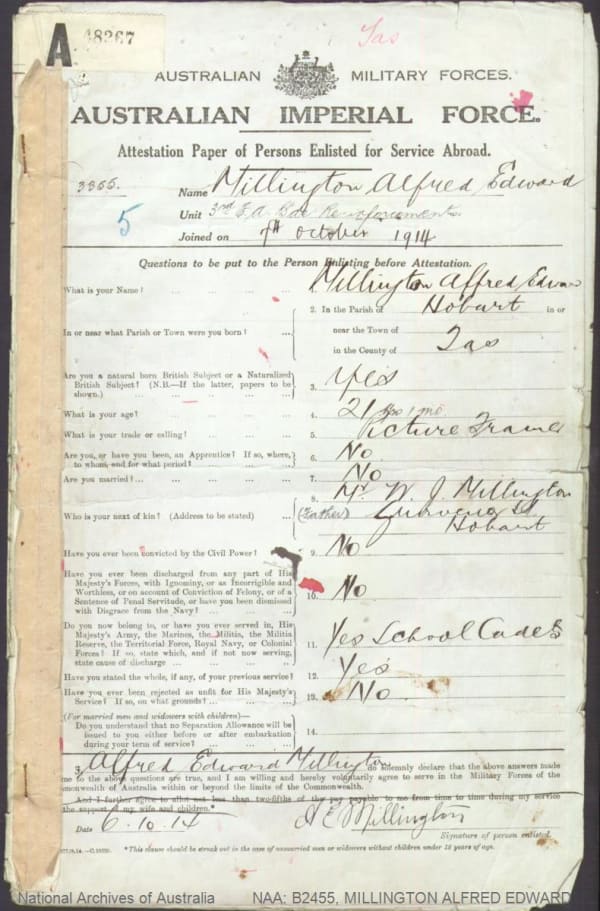 A 48367
Tas
AUSTRALIAN MILITARY FORCES.
AUSTRALIAN IMPERIAL FORCE.
Attestation Paper of Persons Enlisted for Service Abroad.
3355. Name Millington Alfred Edward
5 Unit 3rd F.A. Bde Reinforcements
Joined on 7th October 1914
Questions to be put to the Person Enlisting before Attestation.
What is your Name? ... 1. Millington Alfred Edward
In or near what Parish or Town were you born? ... 2. In the Parish of Hobart in or
near the Town of
in the County of Tas
Are you a natural born British Subject or a Naturalized
British Subject? (N.B.—If the latter, papers to be
shown.) ... 3. Yes
What is your age? ... 4. 21 yrs 1 mo
What is your trade or calling? ... 5. Picture Framer
Are you, or have you been, an Apprentice? If so, where,
to whom, and for what period? ... 6. No
Are you married? ... 7. No
Who is your next of kin? (Address to be stated) ... 8. Mr W. J. Millington
(Father)
Hobart
Have you ever been convicted by the Civil Power? ... 9. No
Have you ever been discharged from any part of His
Majesty's Forces, with Ignominy, or as Incorrigible and
Worthless, or on account of Conviction of Felony, or of a
Sentence of Penal Servitude, or have you been dismissed
with Disgrace from the Navy? ... 10. No
Do you now belong to, or have you ever served in, His
Majesty's Army, the Marines, the Militia, the Militia
Reserve, the Territorial Force, Royal Navy, or Colonial
Forces? If so, state which, and if not now serving,
state cause of discharge ... 11. Yes School Cadets
Have you stated the whole, if any, of your previous service? 12. Yes
Have you ever been rejected as unfit for His Majesty's
Service? If so, on what grounds? ... 13. No
(For married men and widowers with children)—
Do you understand that no Separation Allowance will be
issued to you either before or after embarkation
during your term of service? ... 14.
I, Alfred Edward Millington do solemnly declare that the above answers made
me to the above questions are true, and I am willing and hereby voluntarily agree to serve in the Military Forces of the
monwealth of Australia within or beyond the limits of the Commonwealth.
And I further agree to allot not less than two-fifths of the pay payable to me from time to time during my service
the support of my wife and children.*
Date 6.10.14 A E Millington
Signature of person enlisted.
*This clause should be struck out in the case of unmarried men or widowers without children under 18 years of age.
National Archives of Australia NAA: B2455, MILLINGTON ALFRED EDWARD